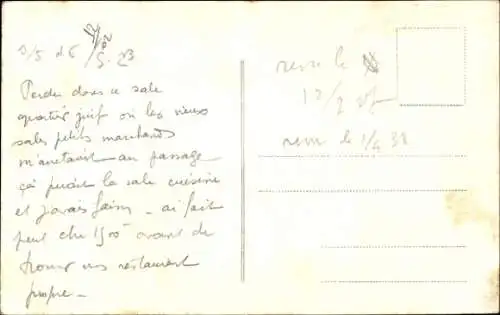 Perdu dans ce sale
quartier juif où les vieux
sales petits marchands
m'arretait au passage
ça puait la sale cuisine
et j'avais faim - ai fait
peut être 1500 avant de
trouver un restaurant
propre -
remi le
12/2
remi le 1/4 38